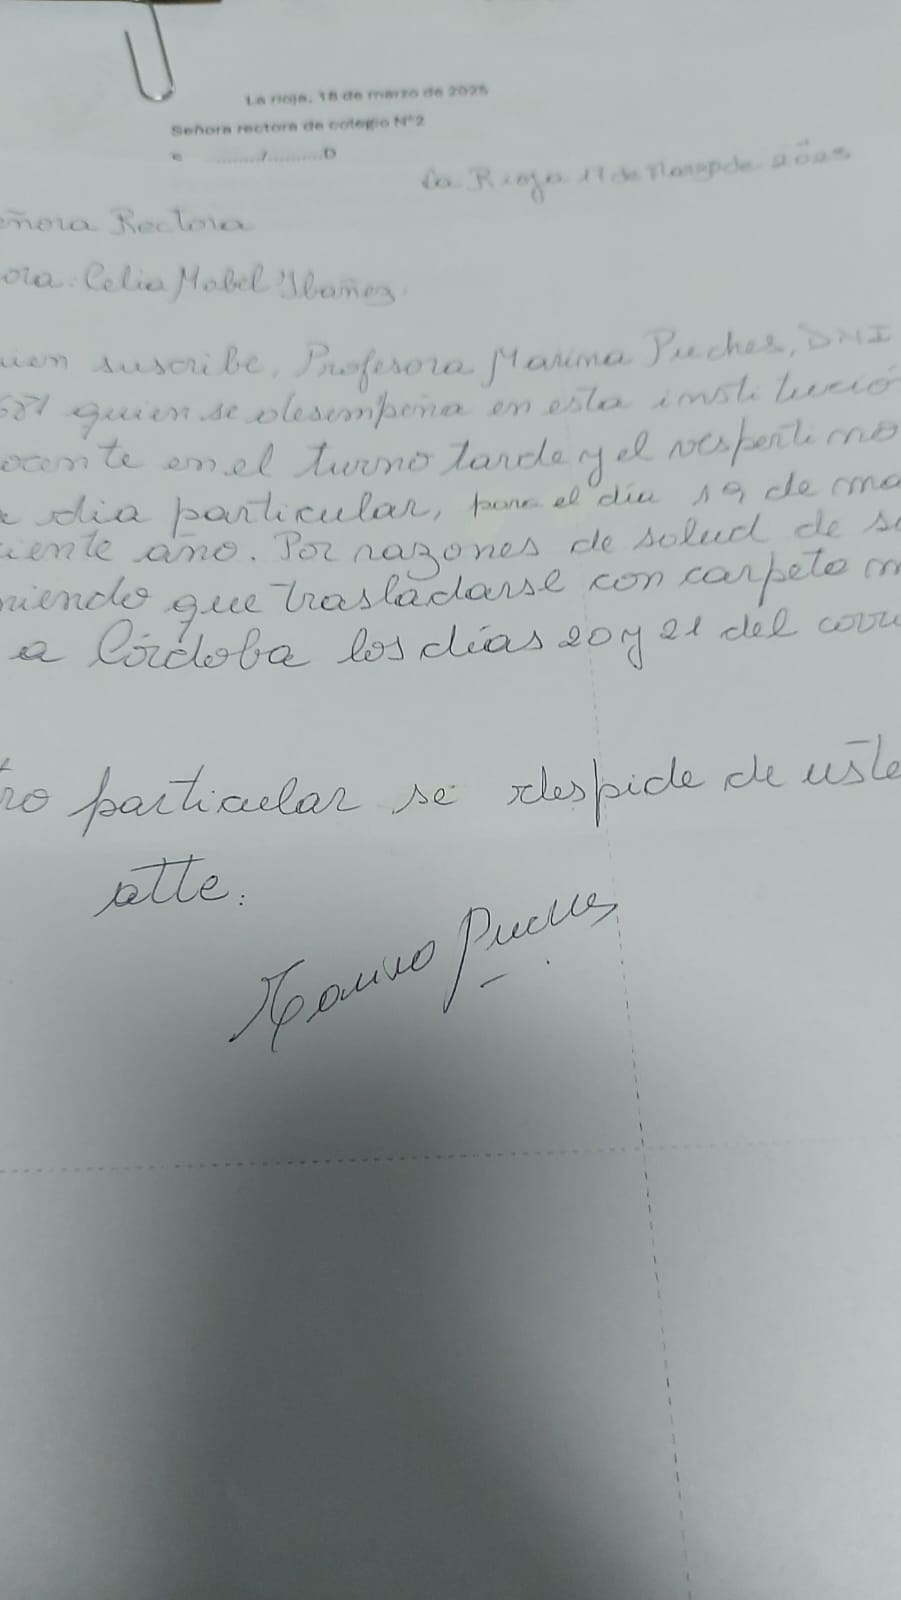 La rioja, 18 de marzo de 2025
Señora rectora de colegio N°2
S ........./..........D
La Rioja 17 de Marzo de 2025
eñora Rectora
ora. Celia Mabel Ibañez.
uien suscribe, Profesora Marina Puches, DNI
quien se desempeña en esta institució
ocente en el turno tarde y el vespertino
dia particular, para el día 19 de ma
iente año. Por razones de salud de
niendo que trasladarse con carpeta m
a Córdoba los días 20 y 21 del corri
tro particular se despide de uste
atte.
Marina Puches